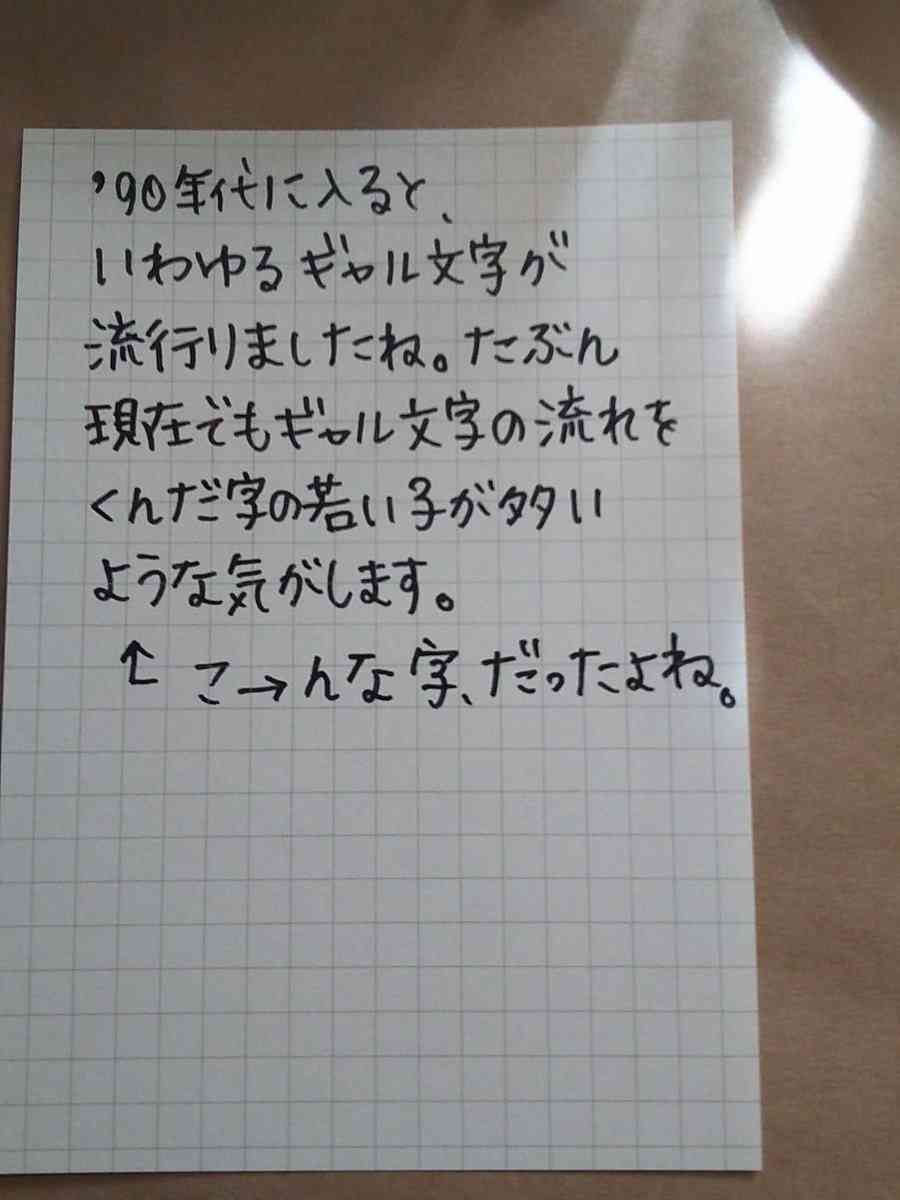 '90年代に入ると、
いわゆるギャル文字が
流行りましたね。たぶん
現在でもギャル文字の流れを
くんだ字の若い子が多い
ような気がします。
↑ こ→んな字、だったよね。